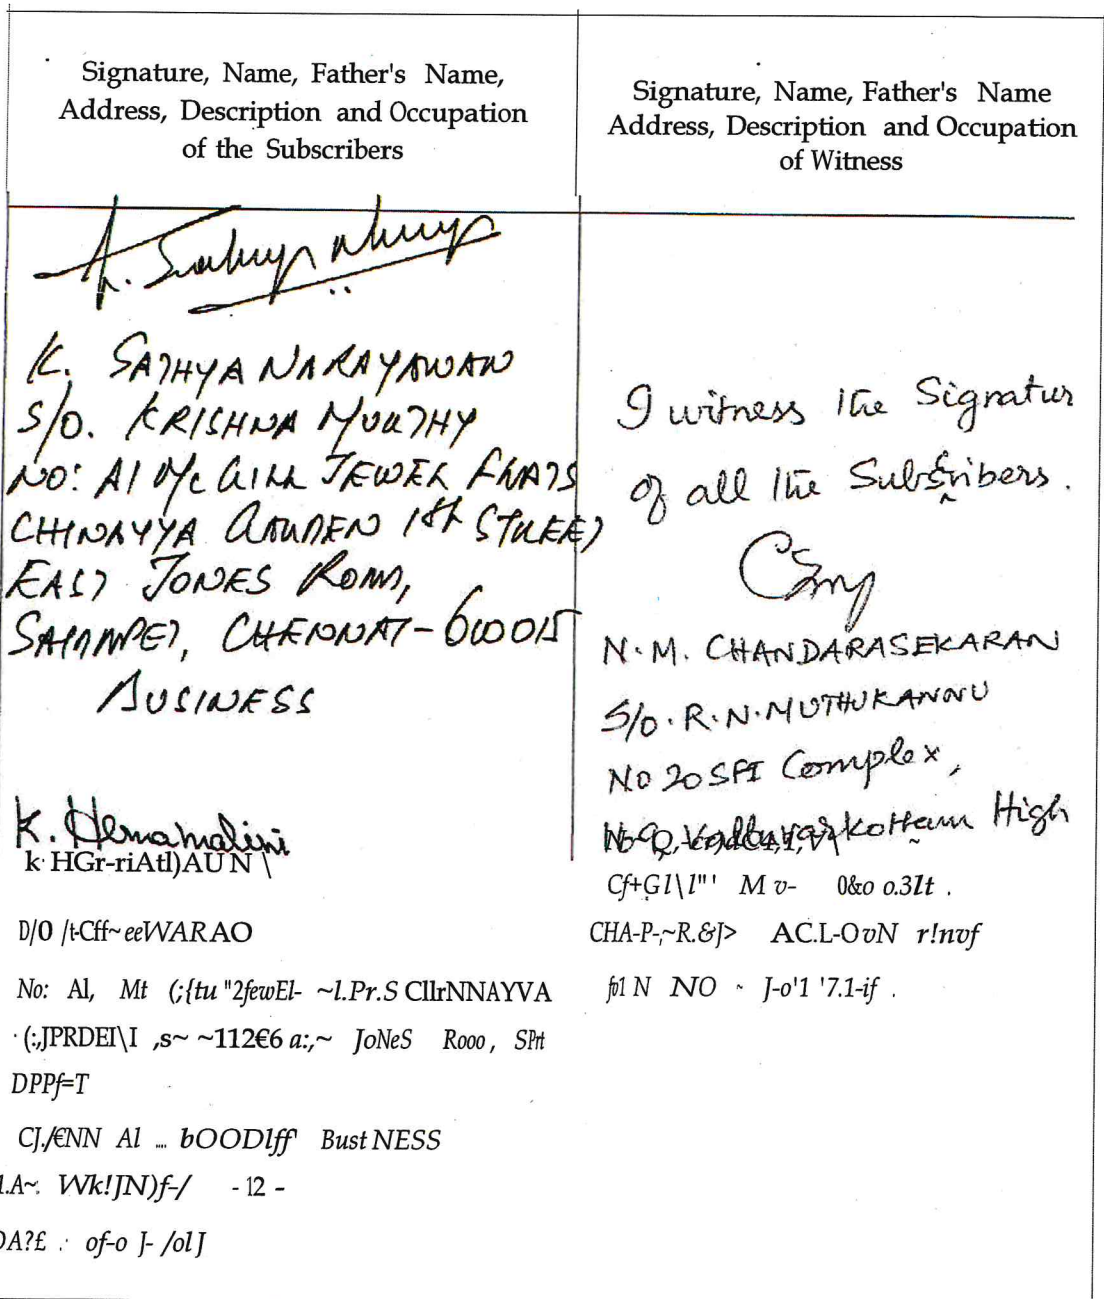 Signature, Name, Father's Name,
Address, Description and Occupation
of the Subscribers
K. SATHYA NARAYANAN
S/O. KRISHNA MURTHY
NO: A1 Mc GILL JEWEL FLATS
CHINAYYA GARDEN 1st STREET
EAST JONES ROAD,
SAIDAPET, CHENNAI-600015
BUSINESS
K. Hemamalini
k HGr-riAtl)AUN \
D/0 /t-Cff~eeWARAO
No: Al, Mt (;{tu "2fewEl- ~l.Pr.S CllrNNAYVA
·(:,JPRDEI\I ,s~ ~112€6 a:,~ JoNeS Rooo, SPrt
DPPf=T
CJ./€NN Al ... bOODlff' Bust NESS
l.A~. Wk!JN)f-/ - 12 -
DA?£ .· of-o J- /olJ
Signature, Name, Father's Name
Address, Description and Occupation
of Witness
I witness the Signatur
of all the Subscribers.
N.M. CHANDARASEKARAN
S/O. R.N. MUTHUKANNU
No 20 SFI Complex,
Valluvarkottam High
Cf+G1\l"' M v- 0&o o.3lt .
CHA-P-,~R.&J> AC.L-OvN r!nvf
fo1 N NO ~ J-o'1 '7.1-if .